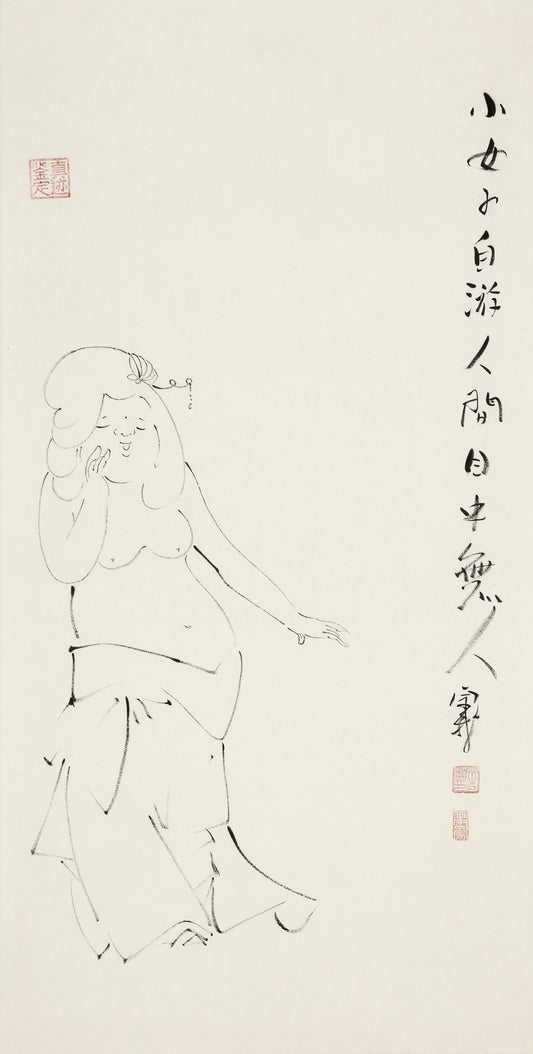 小女子自游人間目中無人
真迹
鉴定